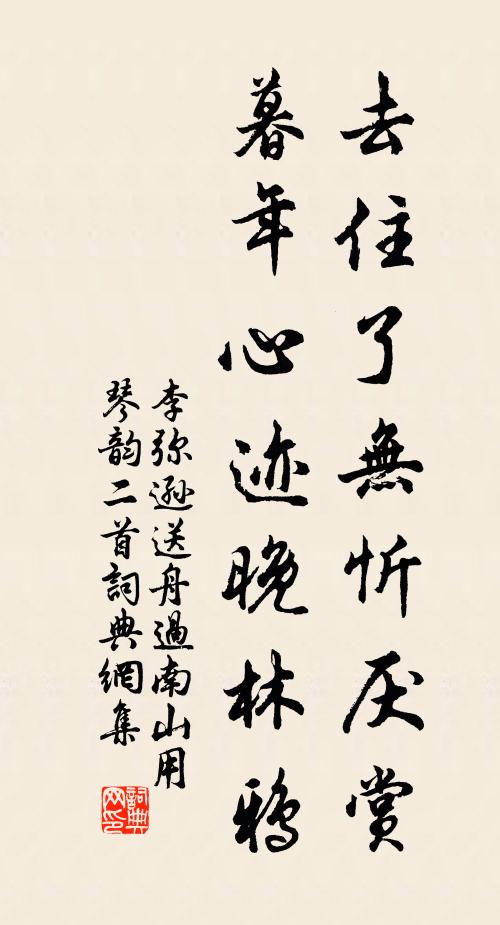 去住了無忻厌賞
暮年心迹晚林鴉
李弥遜送舟過南山用
琴韵二首詞典網集
詞典网印